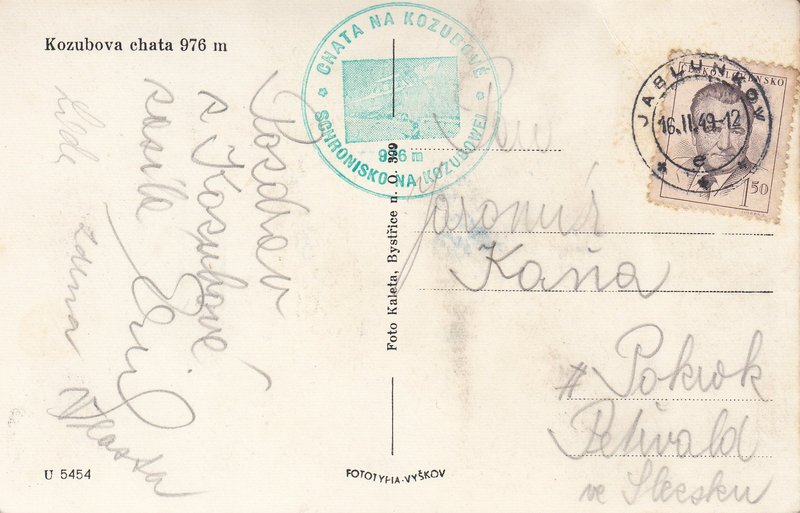 Kozubova chata 976 m
CHATA NA KOZUBOVÉ
976 m
SCHRONISKO NA KOZUBOWEJ
ČESKOSLOVENSKO
1.50
JABLUNKOV
16.II.49-12
c
Pozdrav
z Kozubové
zasílá
Emil
Zdena
Vlasta
Pan
Jaromír
Kaňa
# Pokrok
Petřvald
ve Slezsku
Foto Kaleta, Bystřice n. O. 399
U 5454
FOTOTYPIA-VYŠKOV